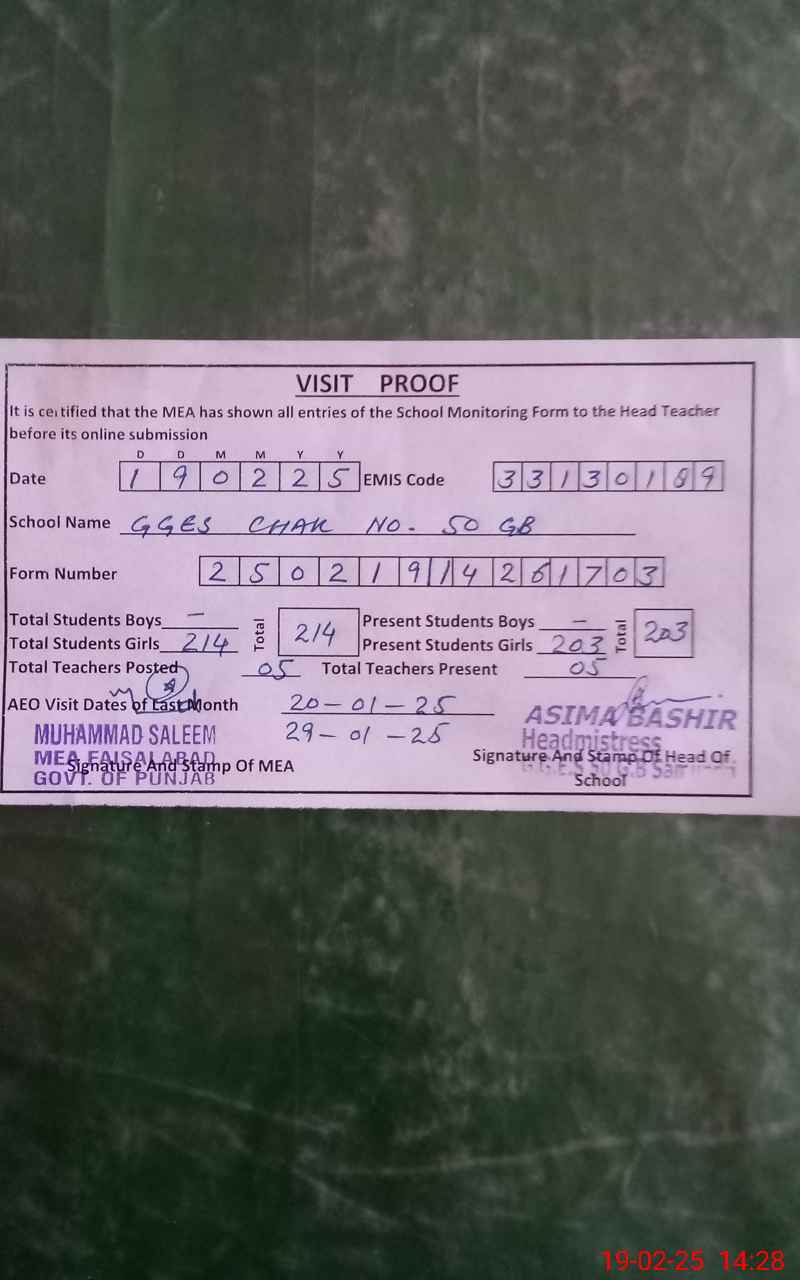 VISIT PROOF
It is certified that the MEA has shown all entries of the School Monitoring Form to the Head Teacher
before its online submission
D D M M Y Y
Date 1 9 0 2 2 5 EMIS Code 3 3 1 3 0 1 8 9
School Name GGES CHAK NO. 50 GB
Form Number 2 5 0 2 1 9 1 4 2 6 1 7 0 3
Total Students Boys — Total 214 Present Students Boys — Total 203
Total Students Girls 214 Present Students Girls 203
Total Teachers Posted 05 Total Teachers Present 05
AEO Visit Dates of Last Month 20-01-25
29-01-25
MUHAMMAD SALEEM
MEA FAISALABAD
GOVT. OF PUNJAB
Signature And Stamp Of MEA
ASIMA BASHIR
Headmistress
Signature And Stamp Of Head Of
School
19-02-25 14:28